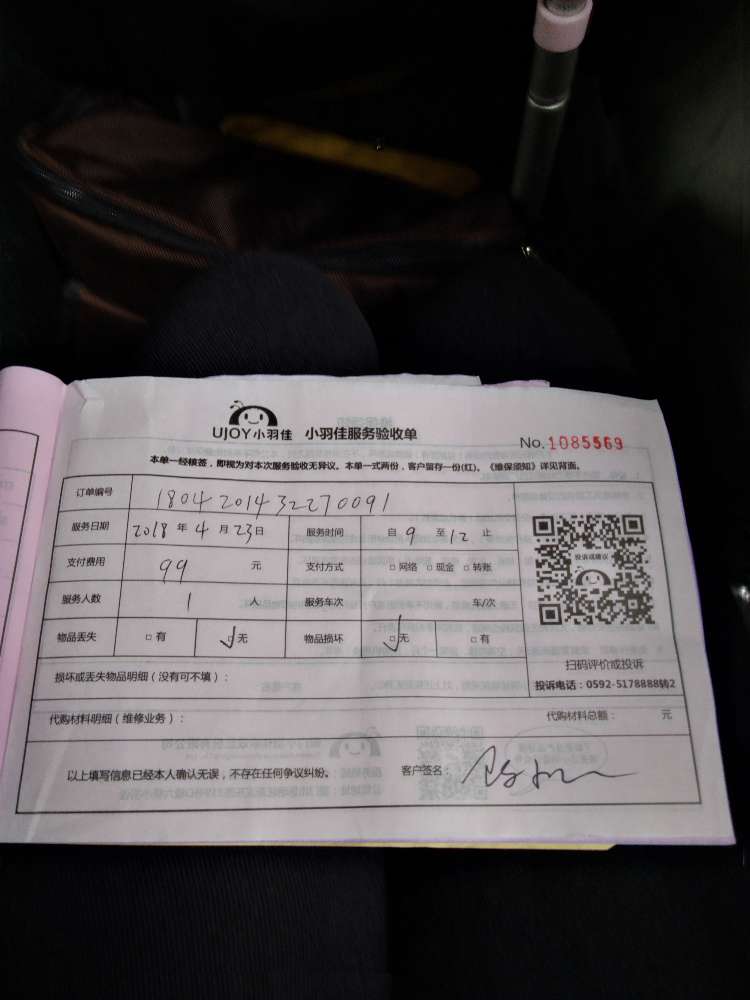 UJOY小羽佳 小羽佳服务验收单
No. 1085569
本单一经核签，即视为对本次服务验收无异议。本单一式两份，客户留存一份(红)。《维保须知》详见背面。
订单编号 1804201432270091
服务日期 2018 年 4 月 23 日 服务时间 自 9 至 12 止
支付费用 99 元 支付方式 □ 网络 □ 现金 □ 转账
服务人数 1 人 服务车次 车/次
物品丢失 □ 有 □ 无 物品损坏 □ 无 □ 有
投诉或建议
扫码评价或投诉
投诉电话：0592-5178888转2
损坏或丢失物品明细（没有可不填）：
代购材料明细（维修业务）： 代购材料总额： 元
以上填写信息已经本人确认无误，不存在任何争议纠纷。 客户签名：